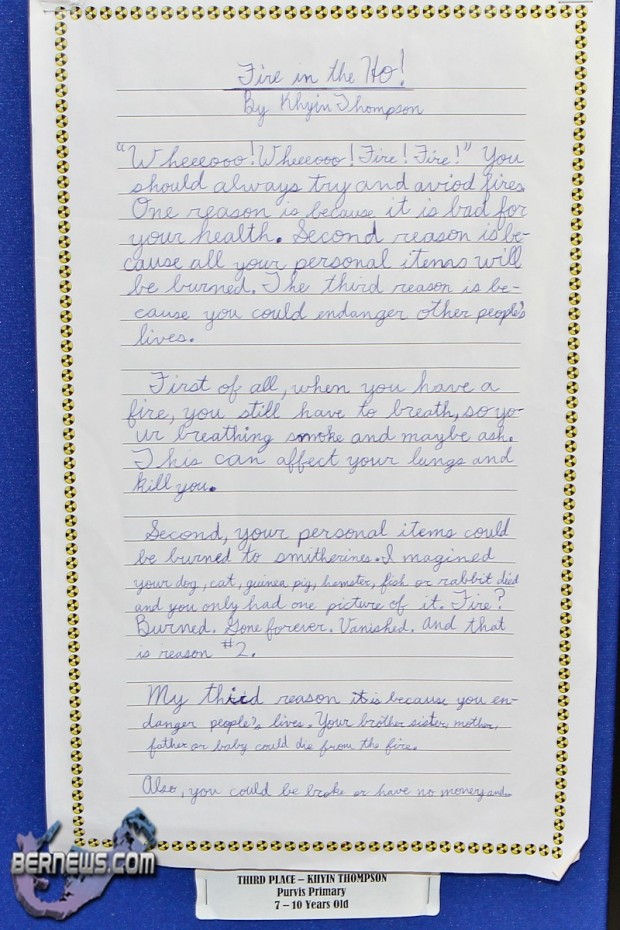 Fire in the Ho!
By Khyin Thompson
"Wheeeooo! Wheeooo! Fire! Fire!" You
should always try and aviod fires.
One reason is because it is bad for
your health. Second reason is be-
cause all your personal items will
be burned. The third reason is be-
cause you could endanger other people's
lives.
First of all, when you have a
fire, you still have to breath, so yo-
ur breathing smoke and maybe ash.
This can affect your lungs and
kill you.
Second, your personal items could
be burned to smitherines. I magined
your dog, cat, guinen pig, hamster, fish or rabbit died
and you only had one picture of it. Fire?
Burned. Gone forever. Vanished. And that
is reason #2.
My third reason is because you en-
danger people's lives. Your brother sister, mother,
father or baby could die from the fire.
Also, you could be broke or have no money and
BERNEWS.COM
THIRD PLACE – KHYIN THOMPSON
Purvis Primary
7 – 10 Years Old